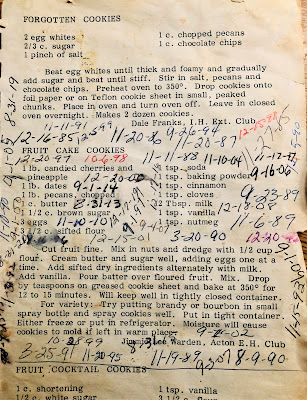 FORGOTTEN COOKIES
2 egg whites 1 c. chopped pecans
2/3 c. sugar 1 c. chocolate chips
1 pinch of salt
Beat egg whites until thick and foamy and gradually
add sugar and beat until stiff. Stir in salt, pecans and
chocolate chips. Preheat oven to 350°. Drop cookies onto
foil paper or on Teflon cookie sheet in small, peaked
chunks. Place in oven and turn oven off. Leave in closed
oven overnight. Makes 2 dozen cookies.
Dale Franks, I.H. Ext. Club
8-31-19
11-11-91
9-26-94
12-16-85
11-20-86
11-20-87
12-15-98
FRUIT CAKE COOKIES
12-20-97 10-6-98 11-11-88 11-10-04 11-17-17
1 lb. candied cherries and 1 tsp. soda
pineapple 1 tsp. baking powder
12-20-02
9-16-06
1 lb. dates 1 tsp. cinnamon
9-11-14
1 lb. pecans, chopped tsp. cloves
c. butter milk
8-31-13
1 1/2 c. brown sugar 1 tsp. vanilla
12-18-88
eggs 1 tsp. nutmeg
11-10-10
11-6-89
3 1/2 c. sifted flour
9-1-07
12-5-02
3-20-90
12-90-90
Cut fruit fine. Mix in nuts and dredge with 1/2 cup
flour. Cream butter and sugar well, adding eggs one at a
time. Add sifted dry ingredients alternately with milk.
Add vanilla. Pour batter over floured fruit. Mix. Drop
by teaspoons on greased cookie sheet and bake at 350° for
12 to 15 minutes. Will keep well in tightly closed container.
For variety: Try putting brandy or bourbon in small
spray bottle and spray cookies well. Put in tight container.
Either freeze or put in refrigerator. Moisture will cause
cookies to mold if left in warm place.
9-21-02
10-28-99
Jimmie Lee Warden, Acton E.H. Club
3-25-91 11-20-95 11-19-89 8-9-90
FRUIT COCKTAIL COOKIES
1 c. shortening 1 tsp. vanilla
1/2 c. white sugar